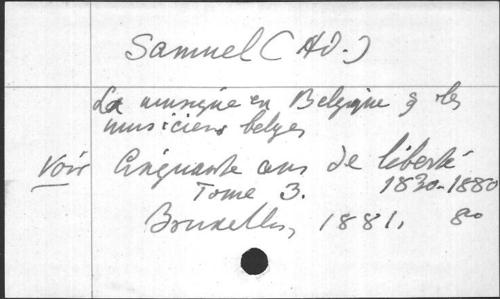 Samuel (Ad.)
La musique en Belgique & les
musiciens belges
Voir Cinquante ans de liberté
Tome 3. 1830-1880
Bruxelles, 1881. 8o